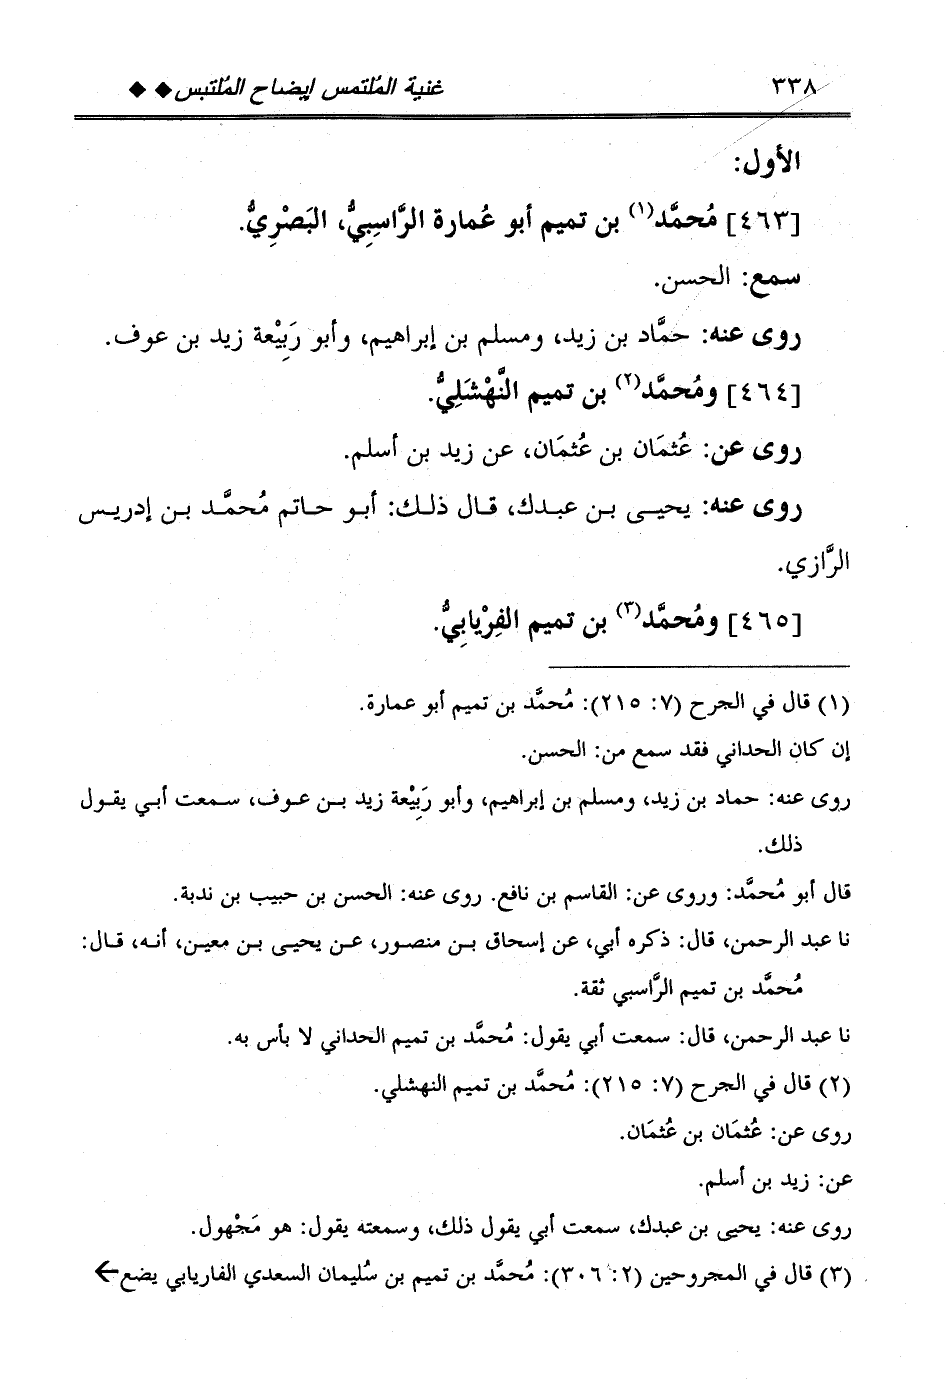 ٣٣٨
غنية الملتمس إيضاح الملتبس ◆◆
الأول:
[٤٦٣] مُحمَّد(١) بن تميم أبو عُمارة الرَّاسِبِيُّ، البَصْرِيُّ.
سمع: الحسن.
روى عنه: حمَّاد بن زيد، ومسلم بن إبراهيم، وأبو رَبِيْعة زيد بن عوف.
[٤٦٤] ومُحمَّد(٢) بن تميم النَّهْشَلِيُّ.
روى عن: عُثمَان بن عُثمَان، عن زيد بن أسلم.
روى عنه: يحيى بن عبدك، قال ذلك: أبو حاتم مُحمَّد بن إدريس
الرَّازي.
[٤٦٥] ومُحمَّد(٣) بن تميم الفِرْيابِيُّ.
(١) قال في الجرح (٧: ٢١٥): مُحمَّد بن تميم أبو عمارة.
إن كان الحداني فقد سمع من: الحسن.
روى عنه: حماد بن زيد، ومسلم بن إبراهيم، وأبو رَبِيْعة زيد بن عوف، سمعت أبي يقول
ذلك.
قال أبو مُحمَّد: وروى عن: القاسم بن نافع. روى عنه: الحسن بن حبيب بن ندبة.
نا عبد الرحمن، قال: ذكره أبي، عن إسحاق بن منصور، عن يحيى بن معين، أنه، قال:
مُحمَّد بن تميم الرَّاسبي ثقة.
نا عبد الرحمن، قال: سمعت أبي يقول: مُحمَّد بن تميم الحداني لا بأس به.
(٢) قال في الجرح (٧: ٢١٥): مُحمَّد بن تميم النهشلي.
روى عن: عُثمَان بن عُثمَان.
عن: زيد بن أسلم.
روى عنه: يحيى بن عبدك، سمعت أبي يقول ذلك، وسمعته يقول: هو مَجْهول.
(٣) قال في المجروحين (٢: ٣٠٦): مُحمَّد بن تميم بن سُليمان السعدي الفاريابي يضع←